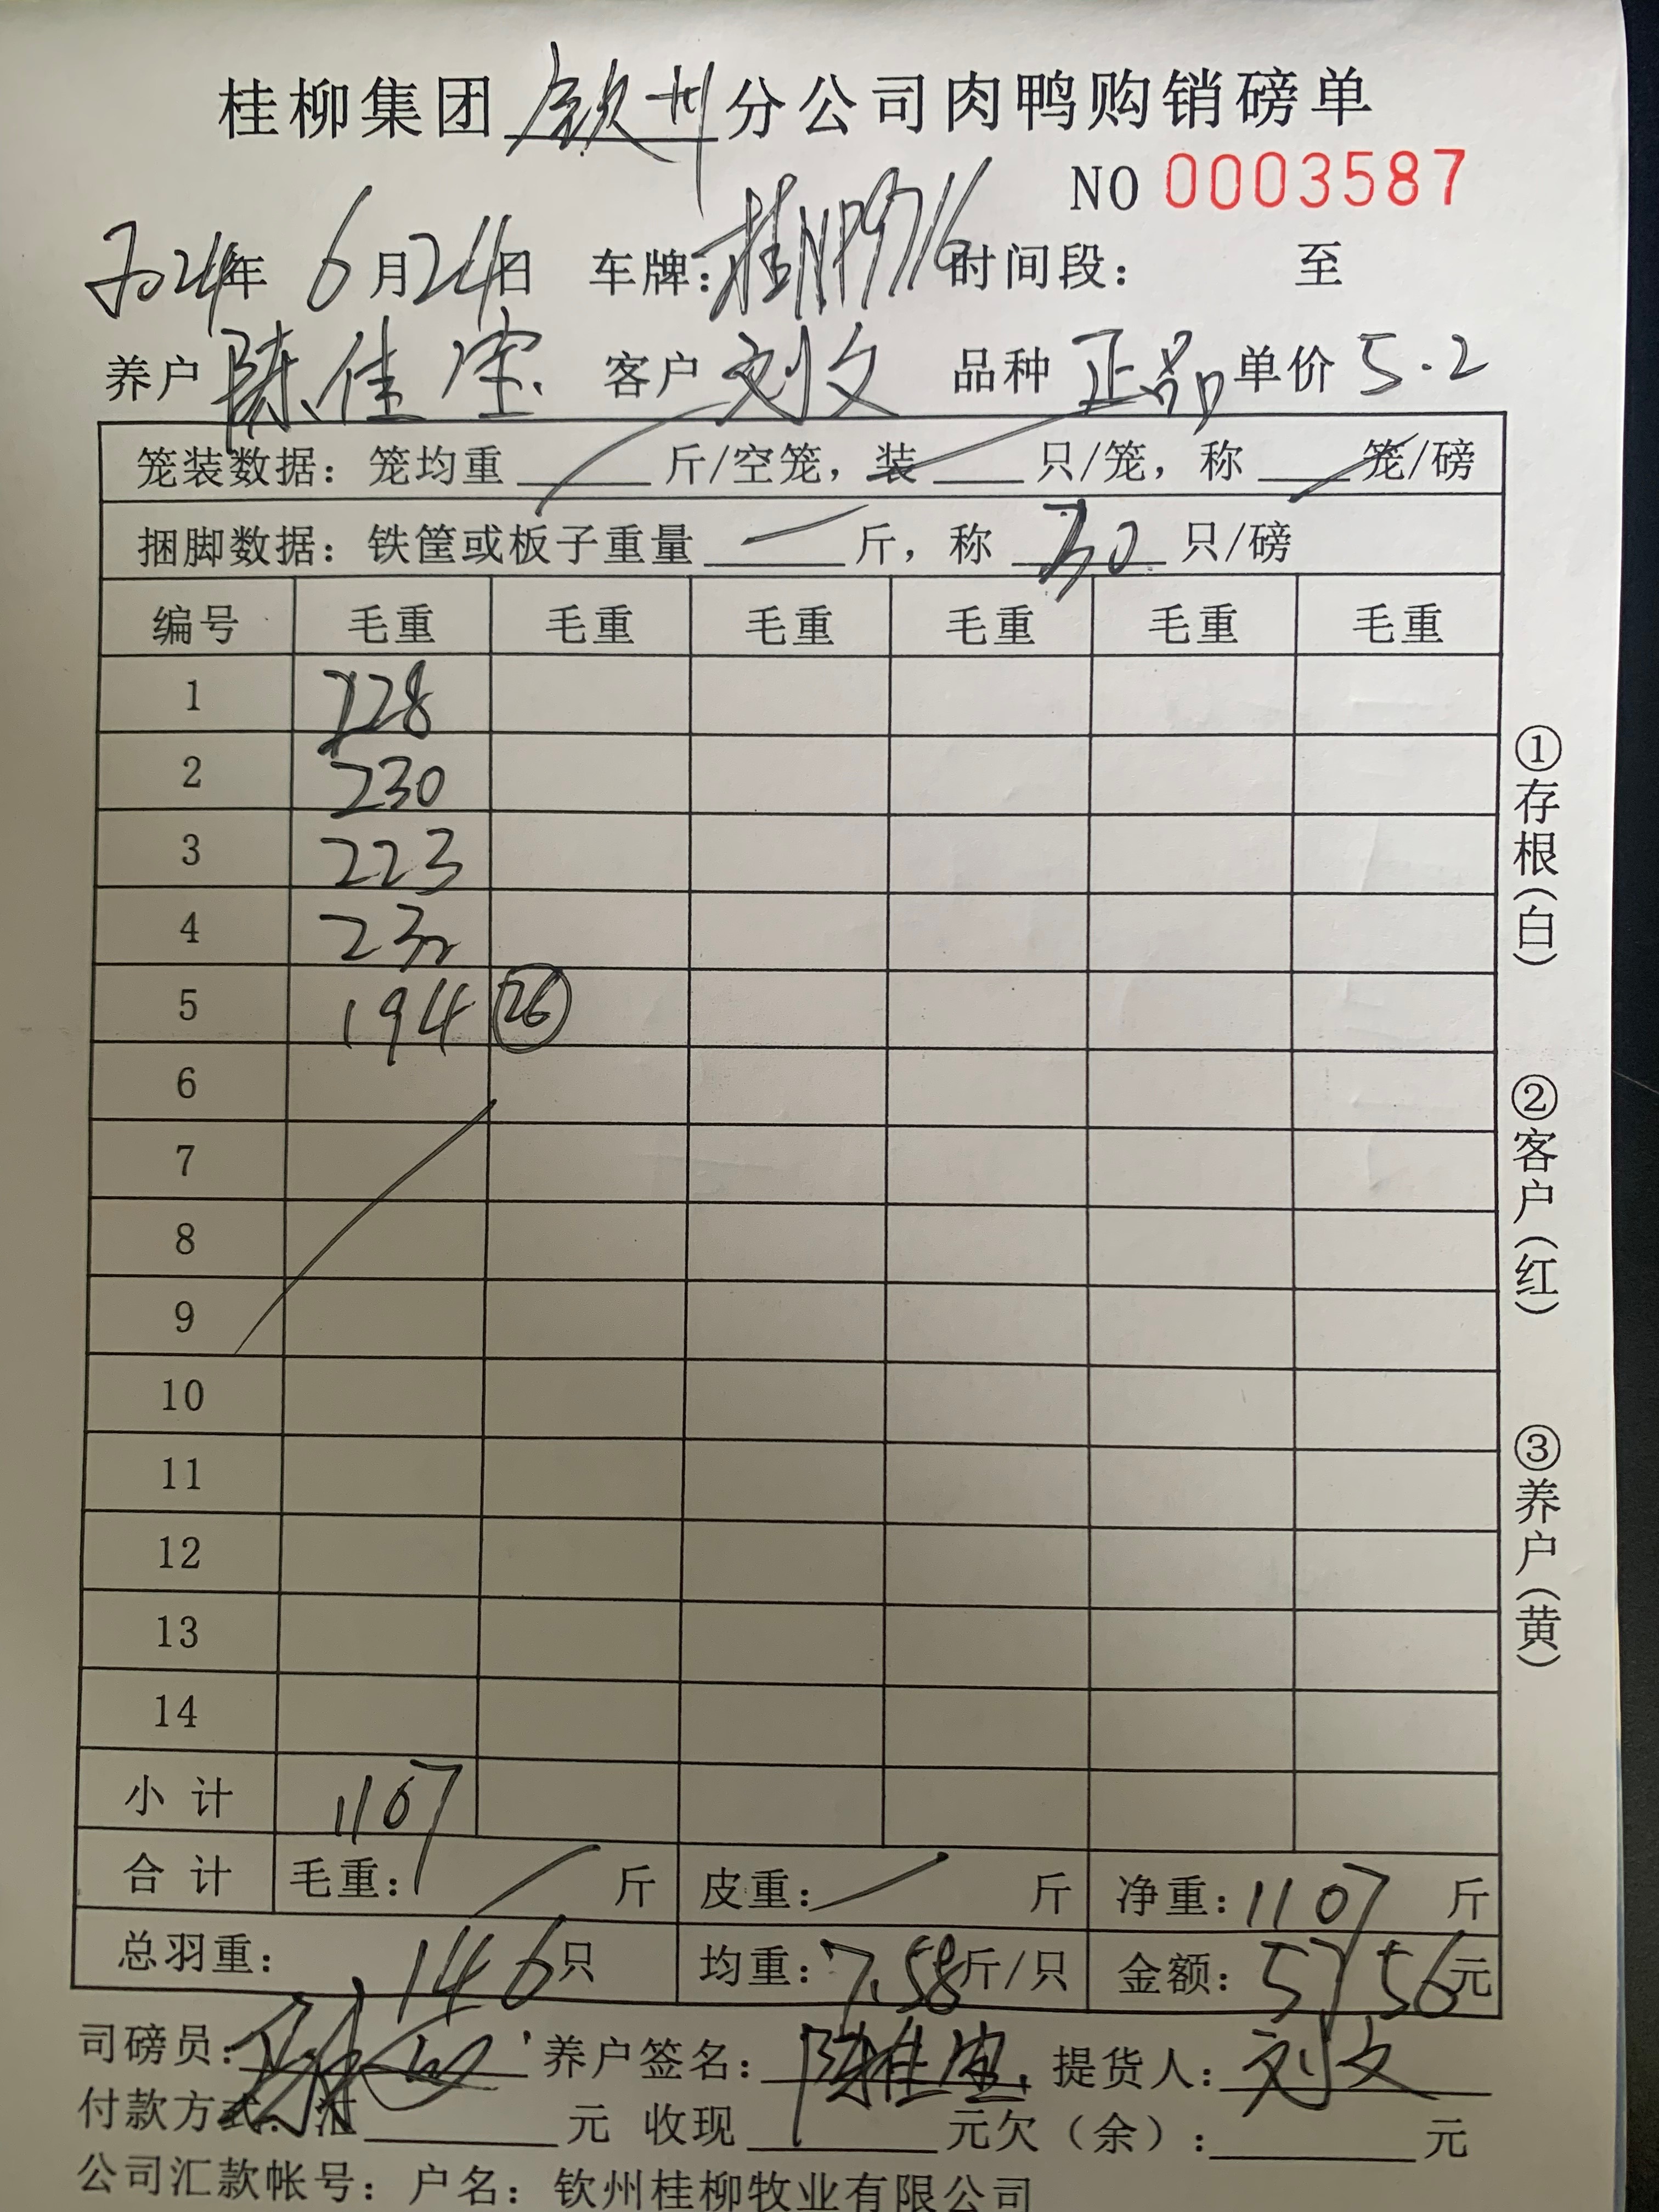 桂柳集团钦州分公司肉鸭购销磅单
NO 0003587
2024年 6月24日 车牌:桂NP9716 时间段: 至
养户 陈佳宝 客户 刘文 品种 正品 单价 5.2
笼装数据: 笼均重 斤/空笼, 装 只/笼, 称 笼/磅
捆脚数据: 铁筐或板子重量 斤, 称 30 只/磅
编号 毛重 毛重 毛重 毛重 毛重 毛重
1 228
2 230
3 223
4 232
5 194 26
6
7
8
9
10
11
12
13
14
小计 1107
合计 毛重: 斤 皮重: 斤 净重: 1107 斤
总羽重: 146只 均重: 7.58斤/只 金额: 5756元
司磅员: 养户签名: 陈佳宝 提货人: 刘文
付款方式: 汇 元 收现 元欠(余): 元
公司汇款帐号: 户名: 钦州桂柳牧业有限公司
①存根(白)
②客户(红)
③养户(黄)